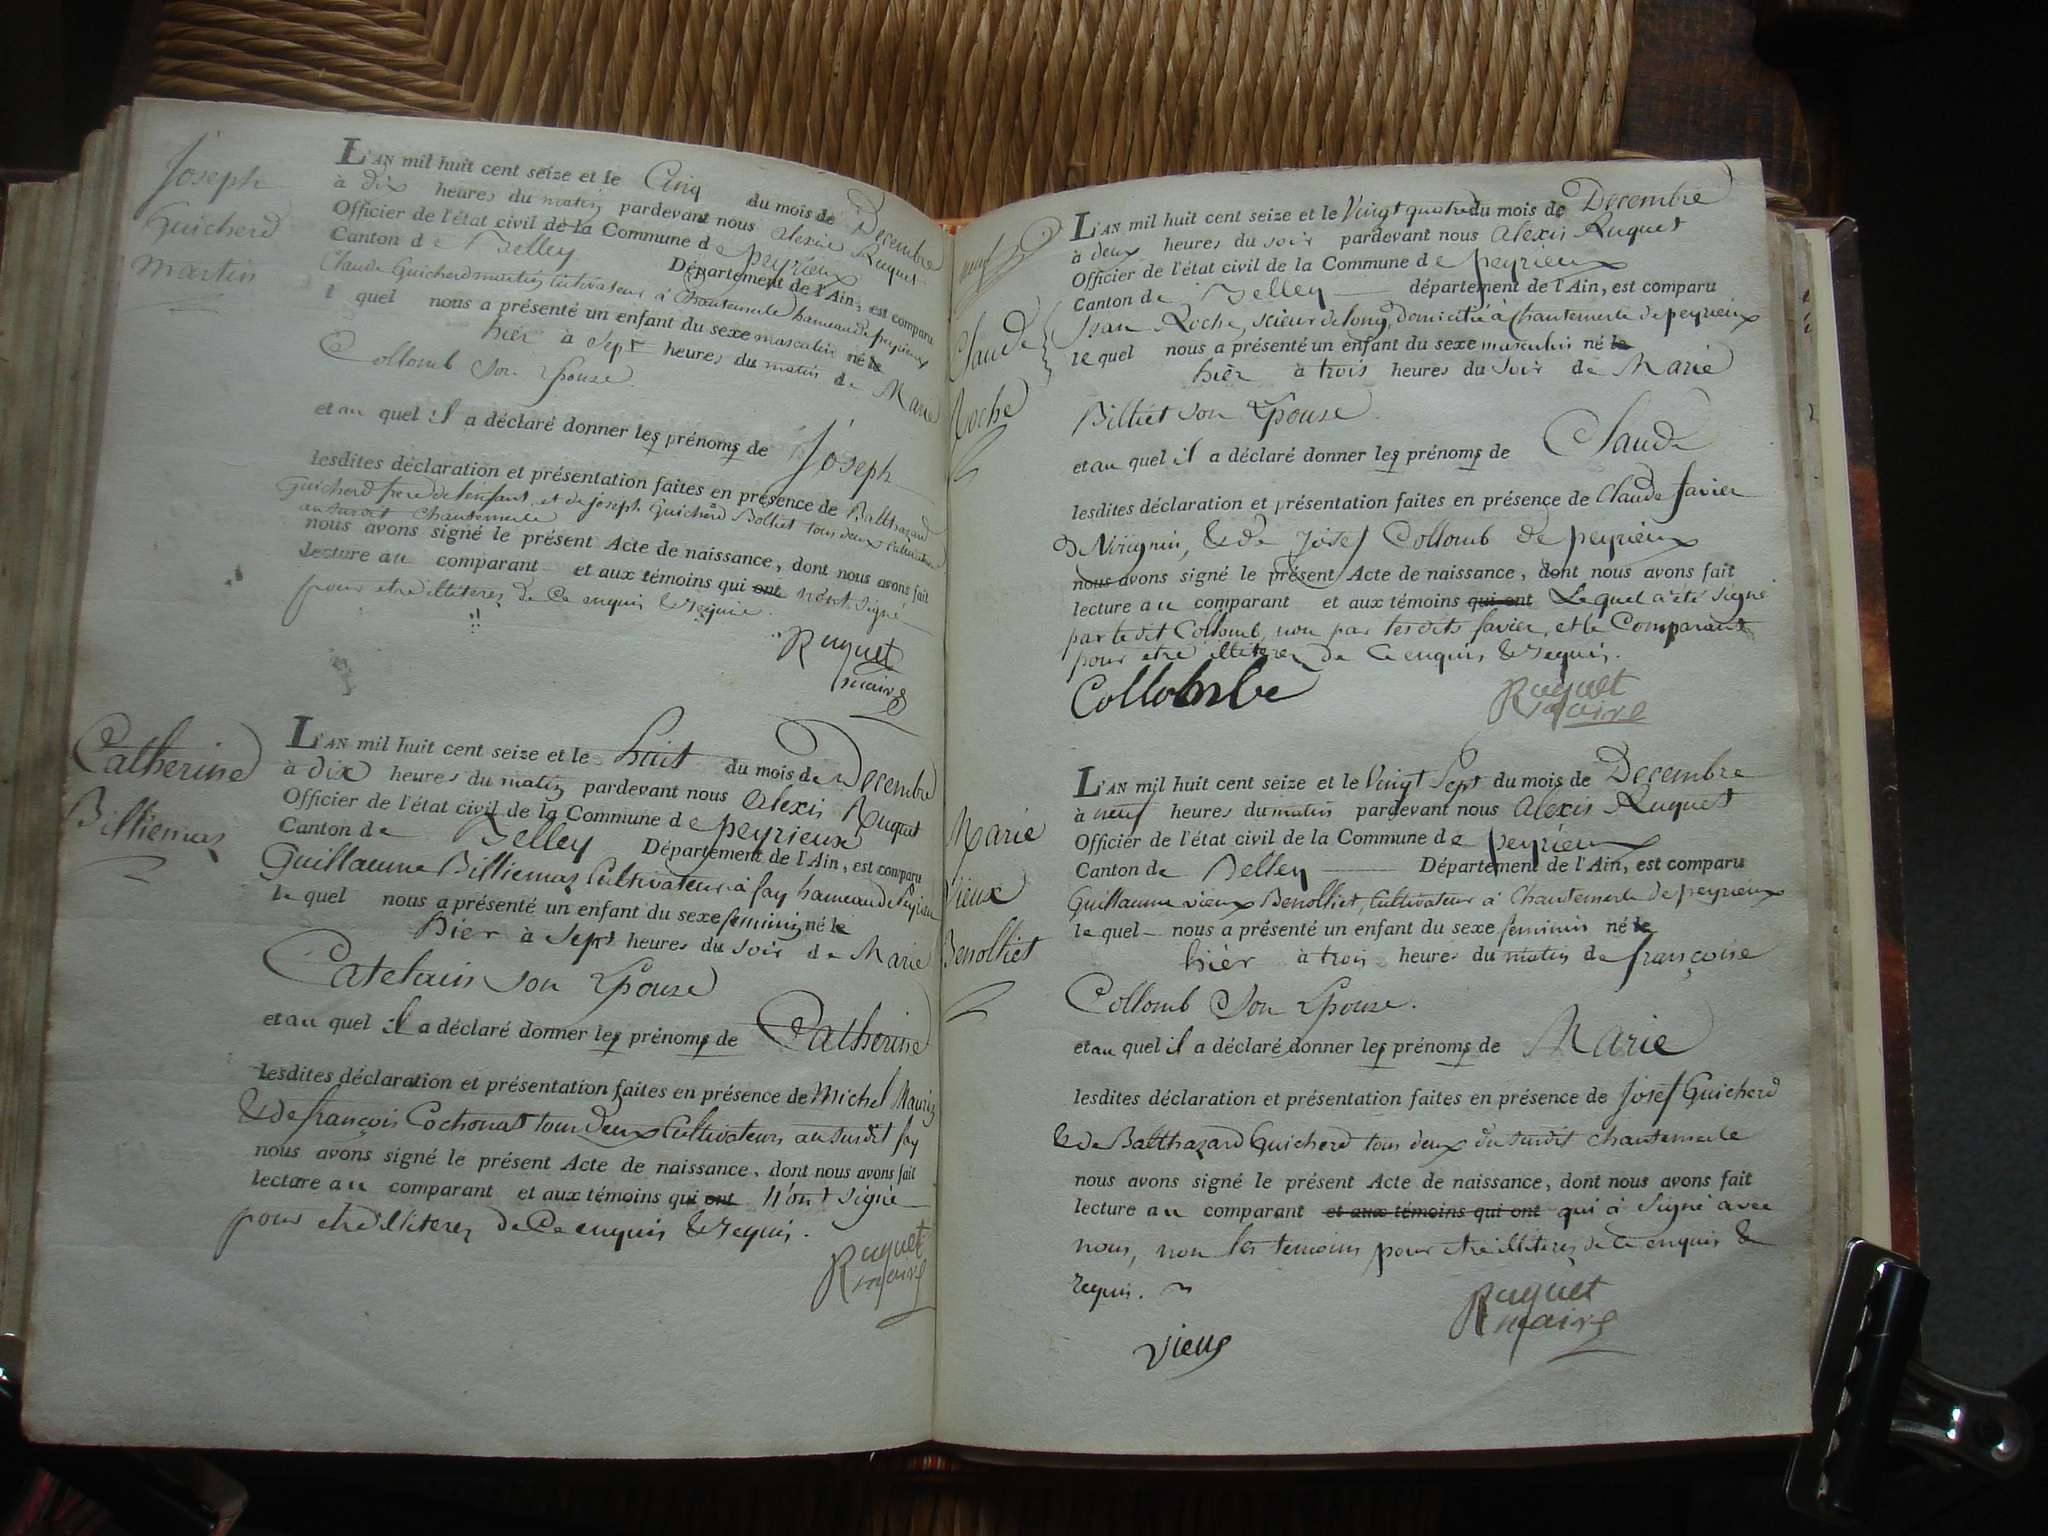 Joseph
Guicherd
Martin
L'AN mil huit cent seize et le Cinq du mois de Decembre
à dix heures du matin pardevant nous alexis Ruquet
Officier de l'état civil de la Commune de peyrieux
Canton de Belley Département de l'Ain, est comparu
Claude Guicherd martin Cultivateur à Chantemerle hameau de peyrieux
l quel nous a présenté un enfant du sexe masculin né le
hier à Sept heures du matin de Marie
Collomb Son Epouse.
et au quel il a déclaré donner les prénoms de Joseph
lesdites déclaration et présentation faites en présence de Balthazard
Guicherd frere de l'enfant, et de joseph Guicherd Bolliet tous deux Cultivateurs
au susdit Chantemerle
nous avons signé le présent Acte de naissance, dont nous avons fait
lecture au comparant et aux témoins qui ont n'ont signé
pour etre illiterés de Ce enquis & requis.
Ruquet
maire
Catherine
Billiemas
L'AN mil huit cent seize et le huit du mois de Decembre
à dix heures du matin pardevant nous alexis Ruquet
Officier de l'état civil de la Commune de peyrieux
Canton de Belley Département de l'Ain, est comparu
Guillaume Billiemas Cultivateur à fay hameau de Peyrieu
le quel nous a présenté un enfant du sexe feminin né le
hier à Sept heures du Soir de Marie
Catelain son Epouse
et au quel il a déclaré donner les prénoms de Catherine
lesdites déclaration et présentation faites en présence de Michel Mauriz
& de françois Cochonat tous deux Cultivateurs au susdit fay
nous avons signé le présent Acte de naissance, dont nous avons fait
lecture au comparant et aux témoins qui ont N'ont Signé
pour etre illiterez de Ce enquis & requis.
Ruquet
maire
Claude
Roche
L'AN mil huit cent seize et le Vingt quatre du mois de Decembre
à deux heures du soir pardevant nous alexis Ruquet
Officier de l'état civil de la Commune de peyrieux
Canton de Belley département de l'Ain, est comparu
Jean Roche, scieur de long, domicilié à Chantemerle de peyrieux
le quel nous a présenté un enfant du sexe masculin né le
hièr à trois heures du Soir de Marie
Billiet son Epouse.
et au quel il a déclaré donner les prénoms de Claude
lesdites déclaration et présentation faites en présence de Claude favier
de Virignin, & de Josef Collomb de peyrieux
nous avons signé le présent Acte de naissance, dont nous avons fait
lecture au comparant et aux témoins qui ont Lequel a été signé
par le dit Collomb, non par les dits favier, et le Comparant
pour etre illiterez de Ce enquis & requis.
Collombe
Ruquet
maire
Marie
Vieux
Benolliet
L'AN mil huit cent seize et le Vingt Sept du mois de Decembre
à neuf heures du matin pardevant nous alexis Ruquet
Officier de l'état civil de la Commune de peyrieux
Canton de Belley Département de l'Ain, est comparu
Guillaume vieux Benolliet, Cultivateur à Chantemerle de peyrieux
le quel nous a présenté un enfant du sexe feminin né le
hièr à trois heures du matin de françoise
Collomb Son Epouse.
et au quel il a déclaré donner les prénoms de Marie
lesdites déclaration et présentation faites en présence de Josef Guicherd
& de Balthazard Guicherd tous deux du susdit Chantemerle
nous avons signé le présent Acte de naissance, dont nous avons fait
lecture au comparant et aux témoins qui ont qui à Signé avec
nous, non les temoins pour etre illiterez de Ce enquis &
requis.
vieux
Ruquet
maire